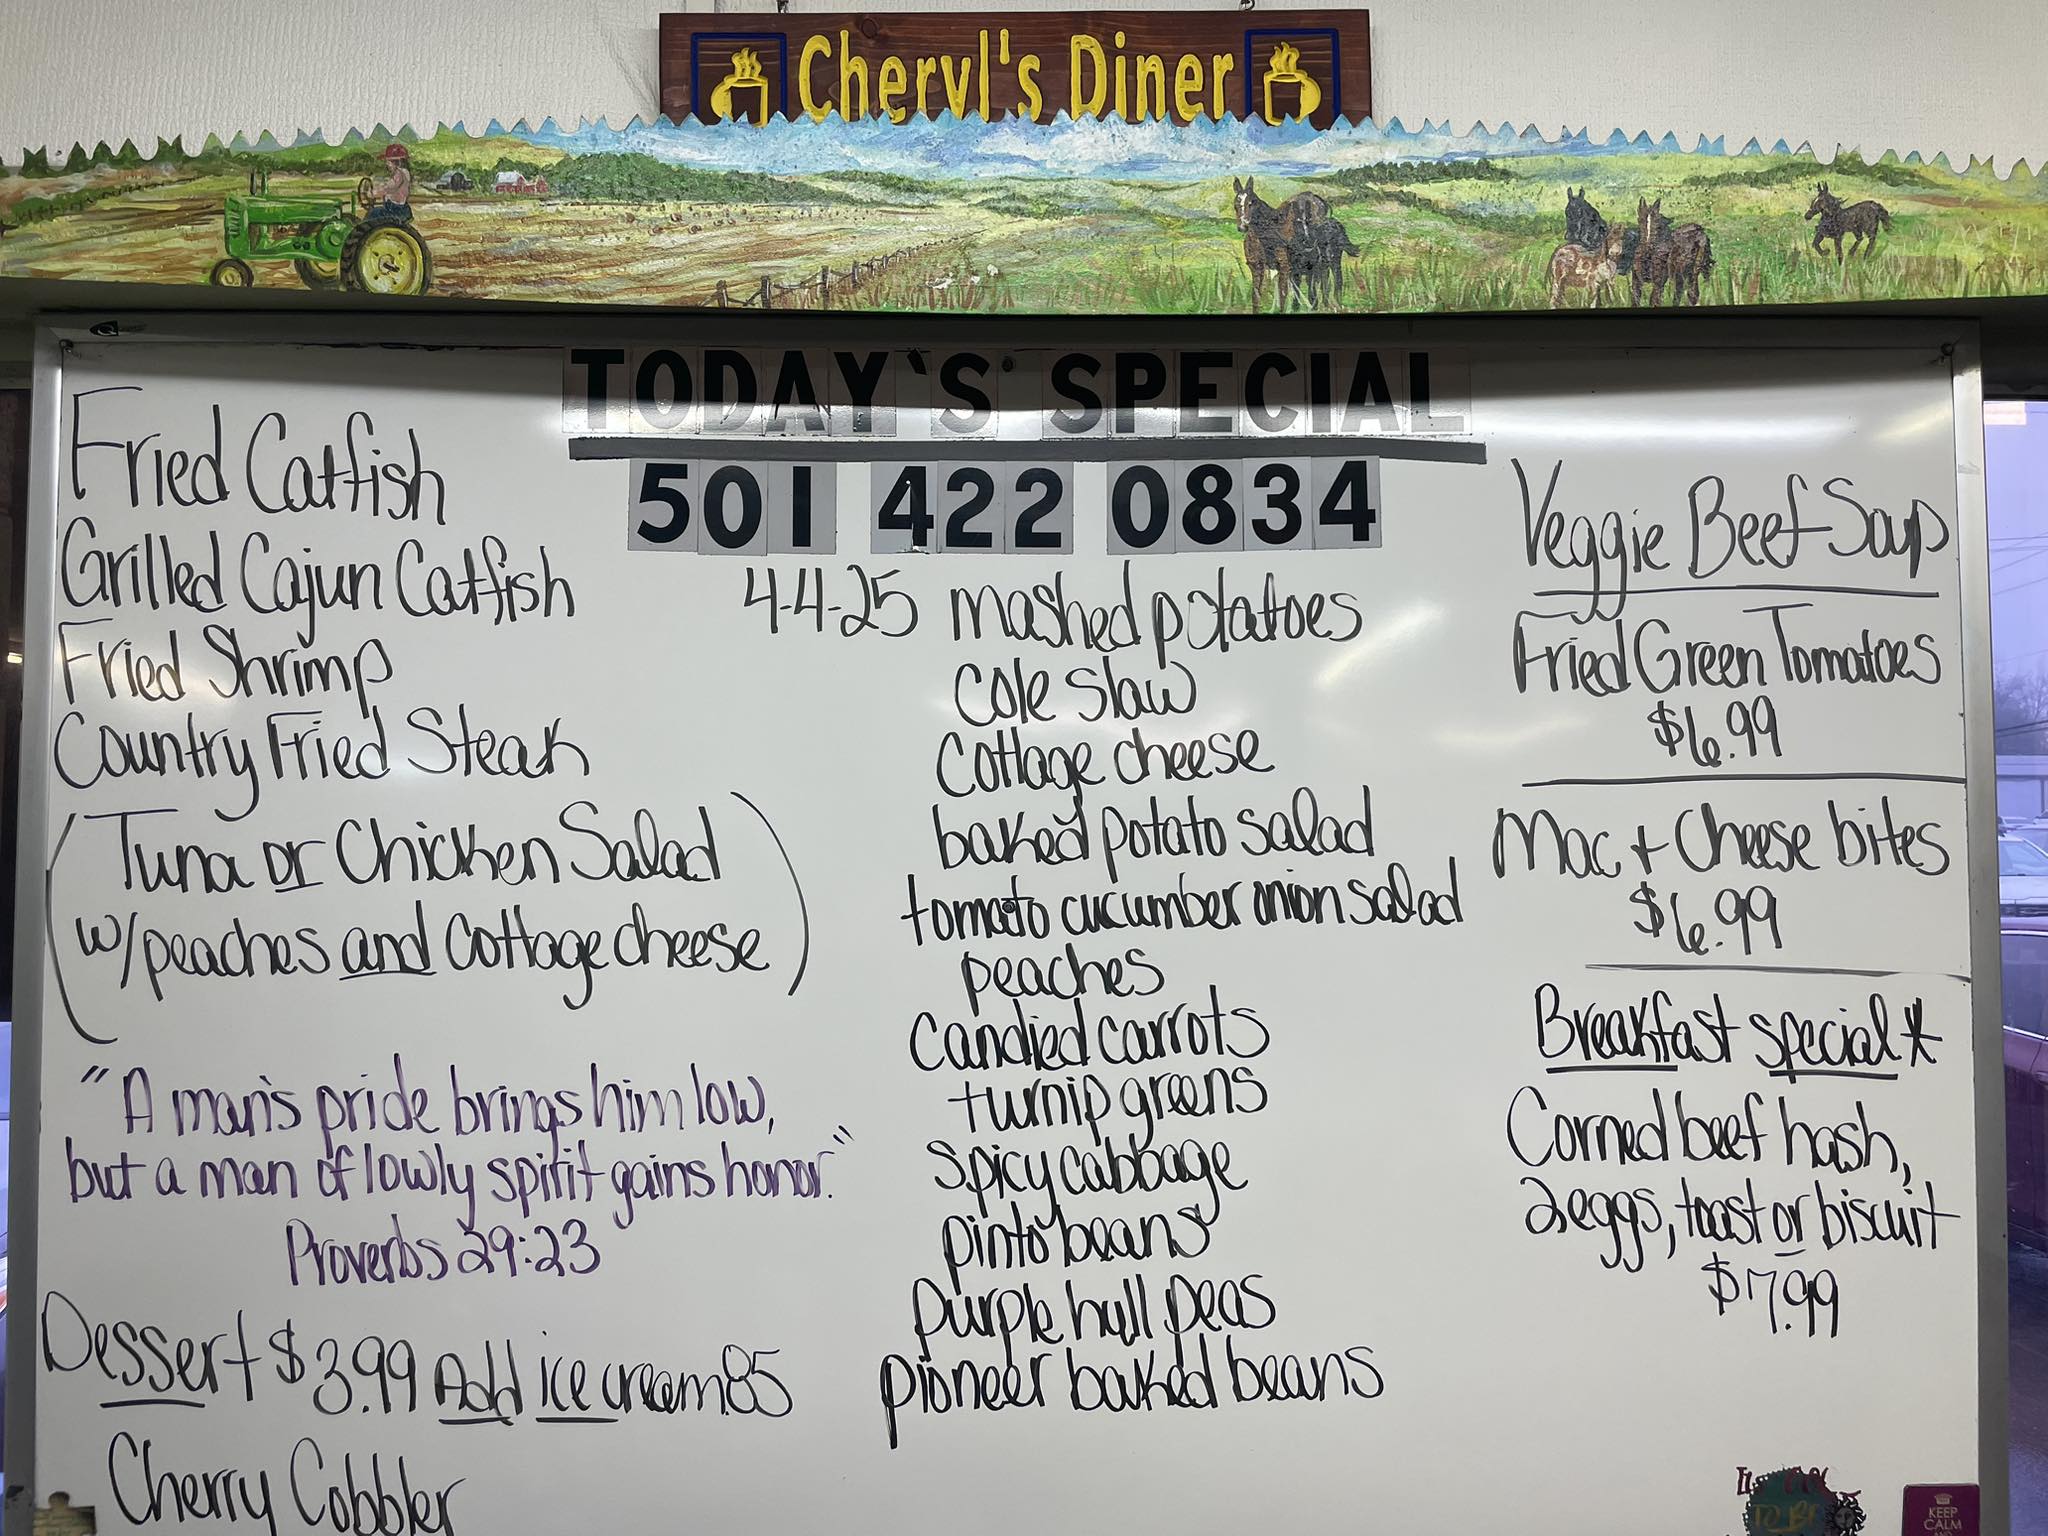 Cheryl's Diner
TODAY'S SPECIAL
501 422 0834
Fried Catfish
Grilled Cajun Catfish
Fried Shrimp
Country Fried Steak
(Tuna or Chicken Salad
w/peaches and Cottage cheese)
"A man's pride brings him low,
but a man of lowly spirit gains honor."
Proverbs 29:23
Dessert $3.99 Add ice cream .85
Cherry Cobbler
4-4-25 mashed potatoes
Cole slaw
Cottage cheese
baked potato salad
tomato cucumber onion salad
peaches
Candied carrots
turnip greens
Spicy cabbage
pinto beans
purple hull peas
pioneer baked beans
Veggie Beef Soup
Fried Green Tomatoes
$6.99
Mac + Cheese bites
$6.99
Breakfast special*
Corned beef hash,
2 eggs, toast or biscuit
$7.99
KEEP
CALM